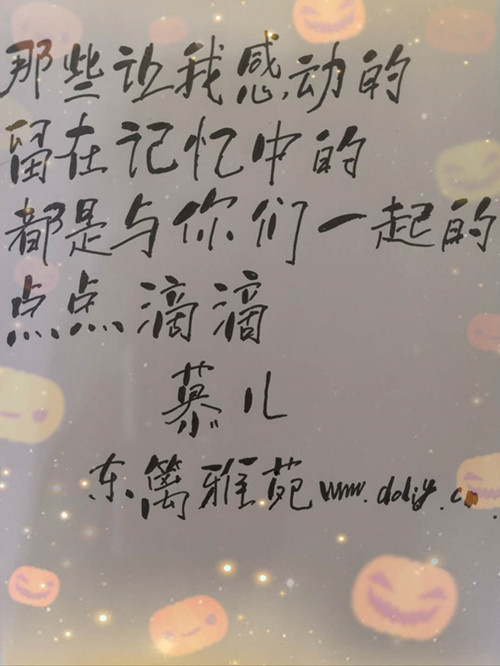 那些让我感动的
留在记忆中的
都是与你们一起的
点点滴滴
慕儿
东篱雅苑 www.ddliy.cn